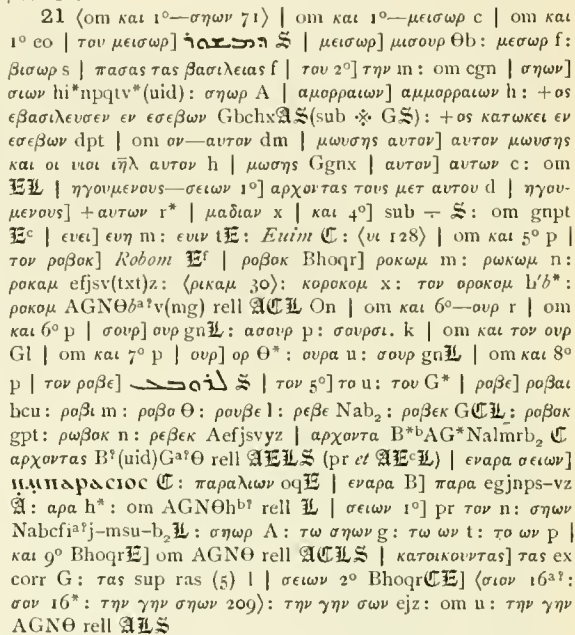 21 ⟨om και 1°—σηων 71⟩ | om και 1°—μεισωρ c | om και
1° eo | τον μεισωρ] S | μεισωρ] μισουρ Θb : μεσωρ f :
βισωρ s | πασας τας βασιλειας f | του 2°] την m : om cgn | σηων]
σιων hi*npqtv*(uid) : σηωρ A | αμορραιων] αμμορραιων h : + ος
εβασιλευσεν εν εσεβων Gbchx𝕬S(sub ※ GS) : + ος κατωκει εν
εσεβων dpt | om ον—αυτον dm | μωυσης αυτον] αυτον μωυσης
και οι υιοι ιηλ̄ αυτον h | μωσης Ggnx | αυτον] αυτων c : om
𝕰𝕷 | ηγουμενους—σειων 1°] αρχοντας τους μετ αυτου d | ηγου-
μενους] + αυτων r* | μαδιαν x | και 4°] sub ÷ S : om gnpt
𝕰ᶜ | ευει] ευη m : ευιν t𝕰 : Euim ℭ : ⟨υι 128⟩ | om και 5° p |
τον ροβοκ] Robom 𝕰ᶠ | ροβοκ Bhoqr] ροκωμ m : ρωκωμ n :
ροκαμ efjsv(txt)z : ⟨ρικαμ 30⟩ : κοροκομ x : τον οροκομ b′b* :
ροκομ AGNΘbᵃ?v(mg) rell 𝕬ℭ𝕷 On | om και 6°—ουρ r | om
και 6° p | σουρ] ουρ gn𝕷 : ασουρ p : σουρσι. k | om και τον ουρ
Gl | om και 7° p | ουρ] ορ Θ* : ουρα u : σουρ gn𝕷 | om και 8°
p | τον ροβε] S | τον 5°] το u : του G* | ροβε] ροβαι
hcu : ροβι m : ροβο Θ : ρουβε l : ρεβε Nab₂ : ροβεκ Gℭ𝕷 : ροβοκ
gpt : ρωβοκ n : ρεβεκ Aefjsvyz | αρχοντα B*ᵇAG*Nalmrb₂ ℭ
αρχοντας B?(uid)Gᵃ?Θ rell 𝕬𝕰𝕷S (pr et 𝕬𝕰ᶜ𝕷) | εναρα σειων]
ⲛⲙⲡⲁⲣⲁⲥⲓⲟⲥ ℭ : παραλιων oq𝕰 | εναρα B] παρα egjnps-vz
𝕬 : αρα h* : om AGNΘhᵇ? rell 𝕷 | σειων 1°] pr τον n : σηων
Nabcfiᵃ?j-msu-b₂𝕷 : σηωρ A : τω σηων g : τω ων t : το ων p |
και 9° Bhoqr𝕰] om AGNΘ rell 𝕬ℭ𝕷S | κατοικουντας] τας ex
corr G : τας sup ras (5) l | σειων 2° Bhoqrℭ𝕰] ⟨σιον 16ᵃ? :
σον 16* : την γην σηων 209⟩ : την γην σων ejz : om u : την γην
AGNΘ rell 𝕬𝕷S